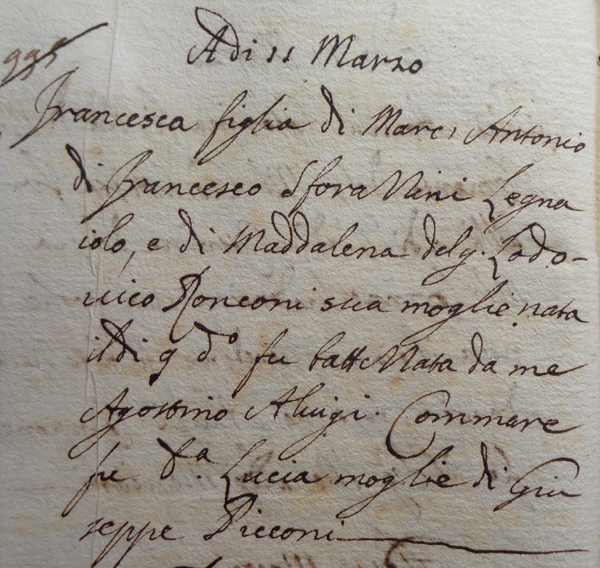 Adi 11 Marzo
995
Francesca figlia di Marc, Antonio
di Francesco Sforazzini Legna
iolo, e di Maddalena del q. Lodo-
vico Ronconi sua moglie nata
il di 9 do fu battezzata da me
Agostino Aluigi. Commare
fu da. Lucia moglie di Giu
seppe Picconi